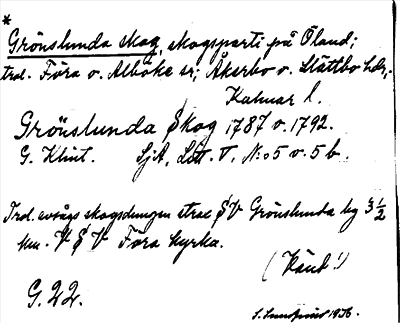 *
Grönslunda skog, skogsparti på Öland;
trol. Föra o. Alböke sr; Åkerbo o. Slättbo hdr,.
Kalmar l.
Grönslunda Skog 1787 o. 1792.
G. Klint. SjA, Litt. V, N:o 5 o. 5 b.
Trol. avsågs skogsdungen strax SV Grönslunda by 3 1/2
km. V S V Föra kyrka.
(Känt!)
G. 22.
1936.